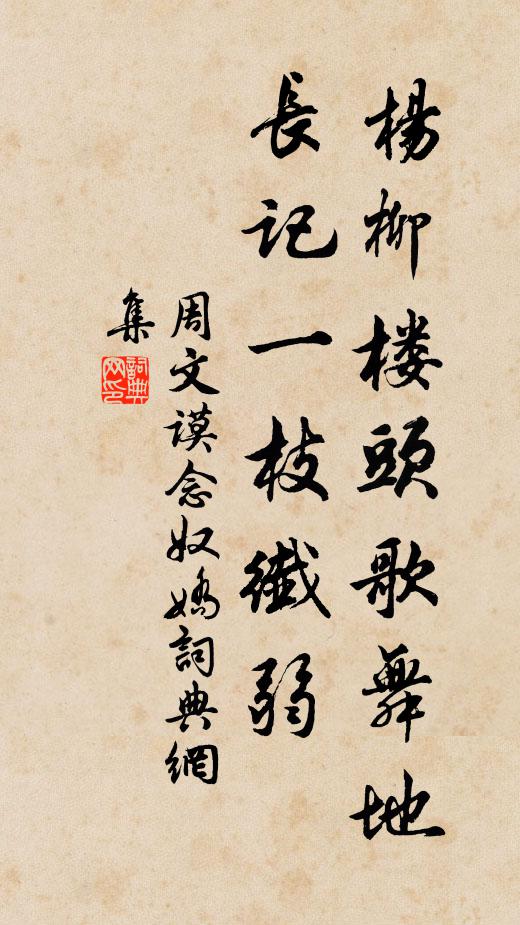 楊柳楼頭歌舞地
長記一枝纖弱
周文謨念奴嬌詞典網
集
詞典网印